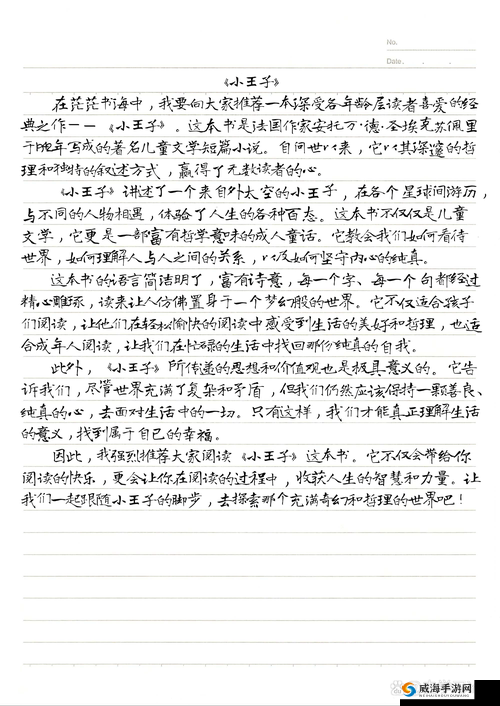 No.
Date. . .
《小王子》
在茫茫书海中，我要向大家推荐一本深受各年龄层读者喜爱的经
典之作——《小王子》。这本书是法国作家安托万·德·圣埃克苏佩里
于晚年写成的著名儿童文学短篇小说。自问世以来，它以其深邃的哲
理和独特的叙述方式，赢得了无数读者的心。
《小王子》讲述了一个来自外太空的小王子，在各个星球间游历，
与不同的人物相遇，体验了人生的各种百态。这本书不仅仅是儿童
文学，它更是一部富有哲学意味的成人童话。它教会我们如何看待
世界，如何理解人与人之间的关系，以及如何坚守内心的纯真。
这本书的语言简洁明了，富有诗意，每一个字、每一个句都经过
精心雕琢，读来让人仿佛置身于一个梦幻般的世界。它不仅适合孩子
们阅读，让他们在轻松愉快的阅读中感受到生活的美好和哲理，也适
合成年人阅读，让我们在忙碌的生活中找回那份纯真的自我。
此外，《小王子》所传递的思想和价值观也是极具意义的。它告
诉我们，尽管世界充满了复杂和矛盾，但我们仍然应该保持一颗善良、
纯真的心，去面对生活中的一切。只有这样，我们才能真正理解生活
的意义，找到属于自己的幸福。
因此，我强烈推荐大家阅读《小王子》这本书。它不仅会带给你
阅读的快乐，更会让你在阅读的过程中，收获人生的智慧和力量。让
我们一起跟随小王子的脚步，去探索那个充满奇幻和哲理的世界吧！
威海手游网